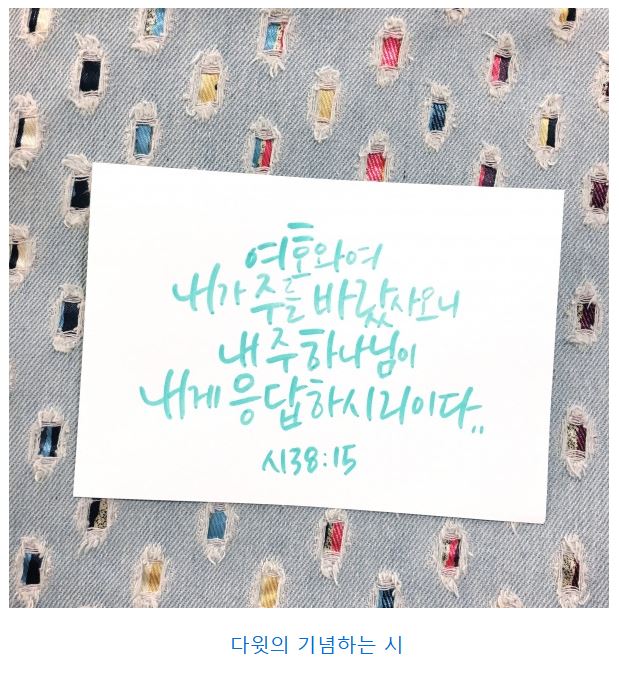 여호와여
내가 주를 바랐사오니
내 주 하나님이
내게 응답하시리이다..
시38:15
다윗의 기념하는 시